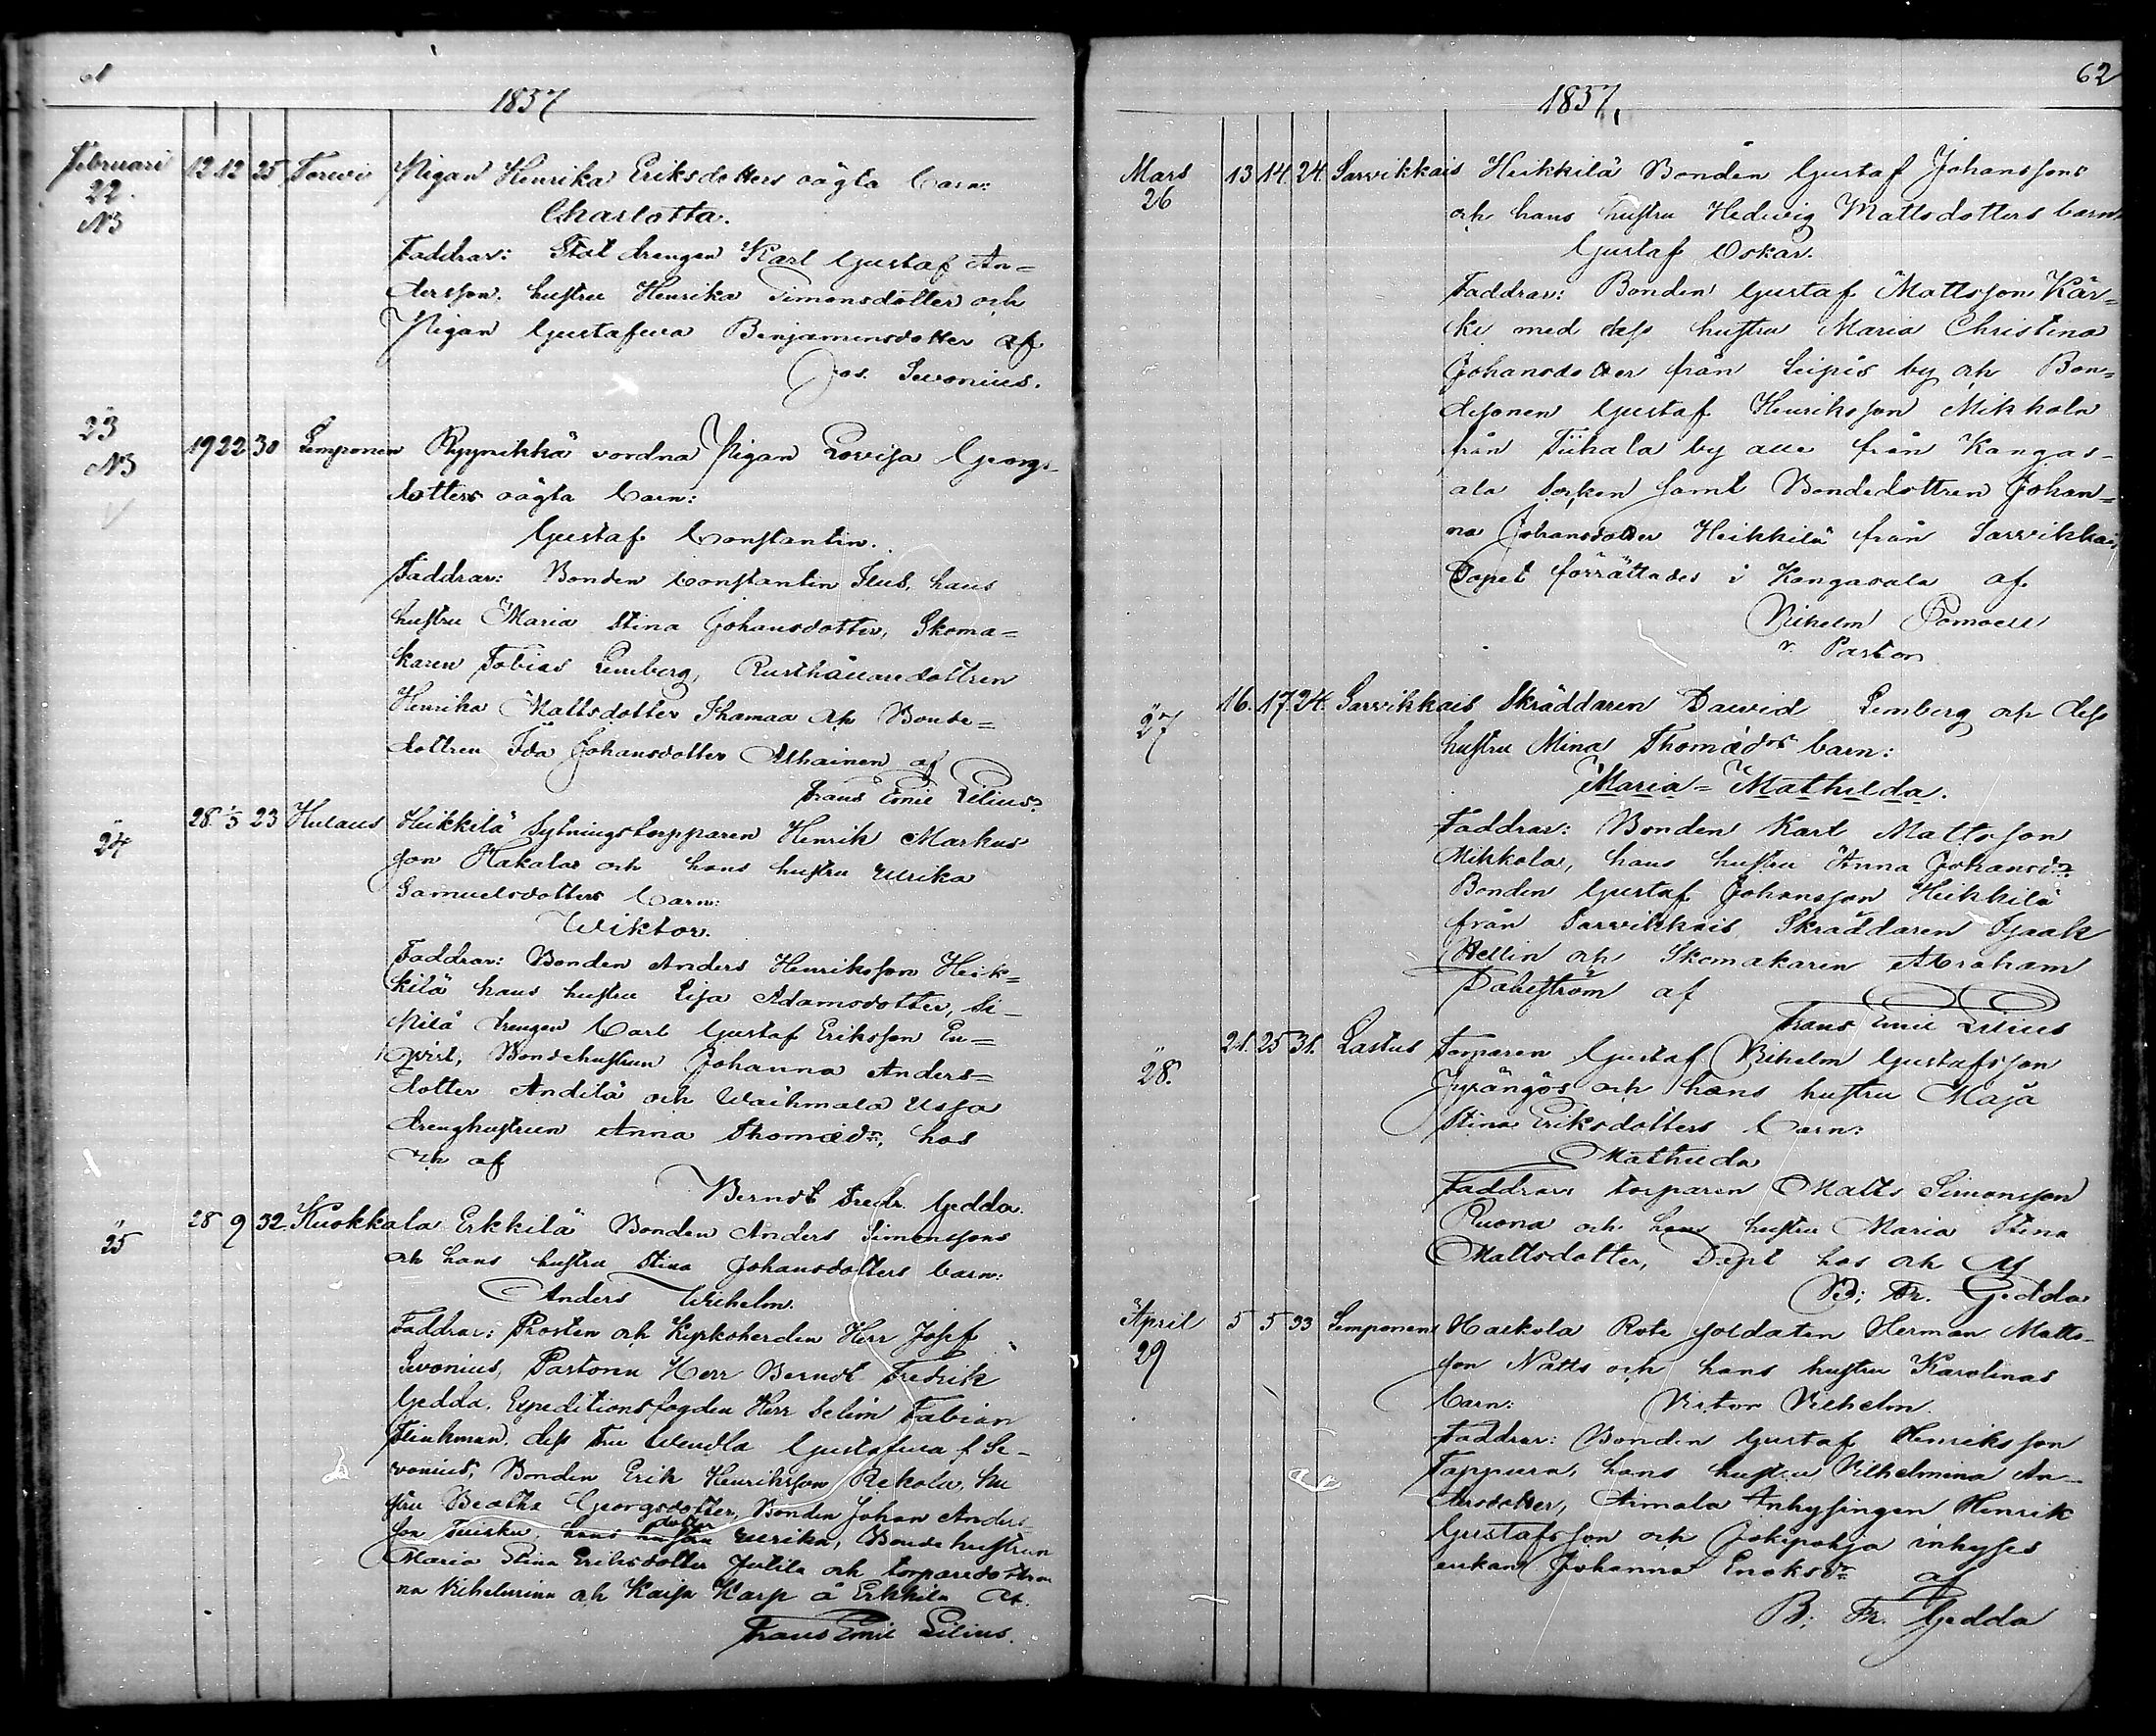 61
1857
Februari 22. N3 12 12 25 Torvi Pigan Henrika Eriksdotters oägta barn:
Charlotta.
Faddrar: Stat drengen Karl Gustaf An=
dersson. hustru Henrika Simonsdotter och
Pigan Gustafwa Benjaminsdotter af
Jos. Sevonius.
23 N3 19 22 30 Lemponen Ryynikkä vordna Pigan Lovisa Georgs
dotters oägta barn:
Gustaf Constantin.
Faddrar: Bonden Constantin Ilus, hans
hustru Maria Stina Johansdotter, Skoma=
karen Tobias Lemberg, Rusthållaredottren
Henrika Mattsdotter Thamaa och Bonde=
dottren Ida Johansdotter Alhainen af
Frans Emil Lilius
24 28 1/3 23 Hulaus Heikkilä Sytningstorpparen Henrik Markus
son Hakala och hans hustru Ulrika
Samuelsdotters barn:
Wiktor.
Faddrar: Bonden Anders Henriksson Heik=
kilä hans hustru Lisa Adamsdotter, Si-
pilä drengen Carl Gustaf Eriksson En=
qvist, Bondehustrun Johanna Anders=
dotter Andilä och Waihmala
drenghustrun Anna Thomædr, hos
och af
Berndt Fredr. Gedda.
25 28 9 32 Kuokkala Erkkilä Bonden Anders Simonssons
och hans hustru Stina Johansdotters barn:
Anders Wilhelm.
Faddrar: Prosten och Kyrkoherden Herr Josef
Sevonius, Pastorn Herr Berndt Fredrik
Gedda, Expeditionsfogden Herr Selim Fabian
Stinkman, dess Fru Wendla Gustafwa f. Se-
vonius, Bonden Erik Henriksson Rekola, hu
stru Beatha Georgsdotter, Bonden Johan Anders
son Tuisku, hans hustru dotter Ulrika, Bonde hustrun
Maria Stina Eriksdotter Jutila och torparedottrar
na Vilhelmina och Kaisa Karp å Erkkila af.
Frans Emil Lilius.
62
1857.
Mars 26 13 14. 24. Sarvikkais Heikkilä Bonden Gustaf Johanssons
och hans hustru Hedvig Mattsdotters barn
Gustaf Oskar.
Faddrar: Bonden Gustaf Mattsson Kär=
ki med dess hustru Maria Christina
Johansdotter från Liepis by och Bon=
desonen Gustaf Henriksson Mikkola
från Tiihala by alla från Kangas-
ala Socken samt Bondedottren Johan=
na Johansdotter Heikkilä från Sarvikkais
Dopet förrättades i Kangasala af
Vilhelm Pomoell
v. Pastor
27 16. 17. 24. Sarvikkais Skräddaren David Lemberg och dess
hustru Mina Thomædrs barn:
Maria=Mathilda.
Faddrar: Bonden Karl Mattsson
Mikkola, hans hustru Anna Johansdr
Bonden Gustaf Johansson Heikkilä
från Sarvikkais Skräddaren Isaak
Hellin och Skomakaren Abraham
Dahlström af
Frans Emil Lilius
28. 21. 25 31. Lastus Torparen Gustaf Vilhelm Gustafsson
Jyrängös och hans hustru Maja
Stina Eriksdotters barn:
Mathilda
Faddrar: torparen Matts Simonsson
Ruona och hans hustru Maria Stina
Mattsdotter, Döpt hos och af
B: Fr. Gedda
April 29 5 5 33 Lemponen Harkola Rote soldaten Herman Matts-
son Natts och hans hustru Karolinas
barn: Victor Vilhelm.
Faddrar: Bonden Gustaf Henriksson
Tappura, hans hustru Vilhelmina An-
dersdotter, Aimala Inhysingen Henrik
Gustafsson och Jokipohja inhyses
enkan Johanna Enoksdr af
B: Fr. Gedda